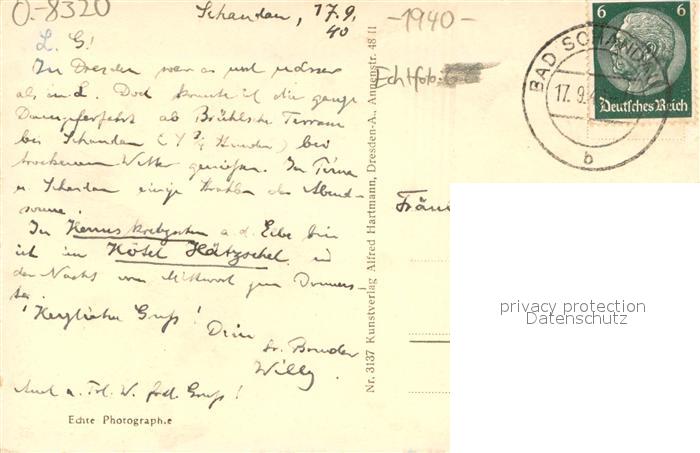 O-8320
Schandau, 17.9.
40
-1940-
L. G!
In Dresden war es
als in L. Doch konnte ich die ganze
Dampferfahrt ab Brühlsche Terrasse
bis Schandau (4 3/4 Stunden) bei
trockenem Wetter genießen. In Pirna
u. Schandau einige Strahlen der Abend-
sonne!
In Herrnskretschen a. d. Elbe bin
ich im Hôtel Hätzschel
der Nacht von Mittwoch zum Donners-
tag.
Herzlichen Gruß!
Dein
Br. Bruder
Willy.
Auch a. Frl. W. frdl. Gruß!
Echte Photographie
Nr. 3137 Kunstverlag Alfred Hartmann, Dresden-A., Annenstr. 48 II
Echtfoto
BAD SCHANDAU
17. 9. 4
b
6 6
Deutsches Reich
Fräul
privacy protection
Datenschutz